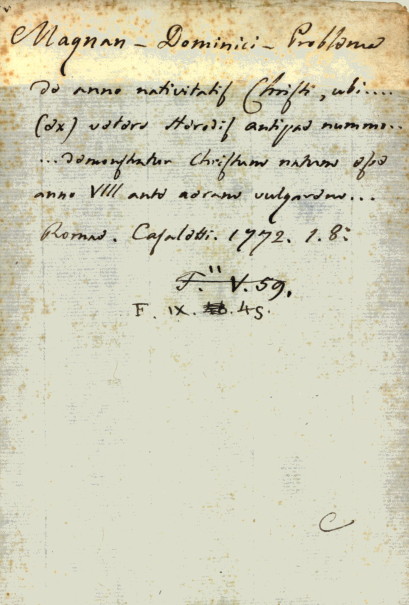 Magnan - Dominici - Problema
de anno nativitatis Christi, ubi....
(ex) vetere Herodis antipae nummo...
...demonstratur Christum natum esse
anno VIII ante aeram vulgarem...
Romae. Casaletti. 1772. 1. 8:
F." V. 59.
F. IX. 45.
C